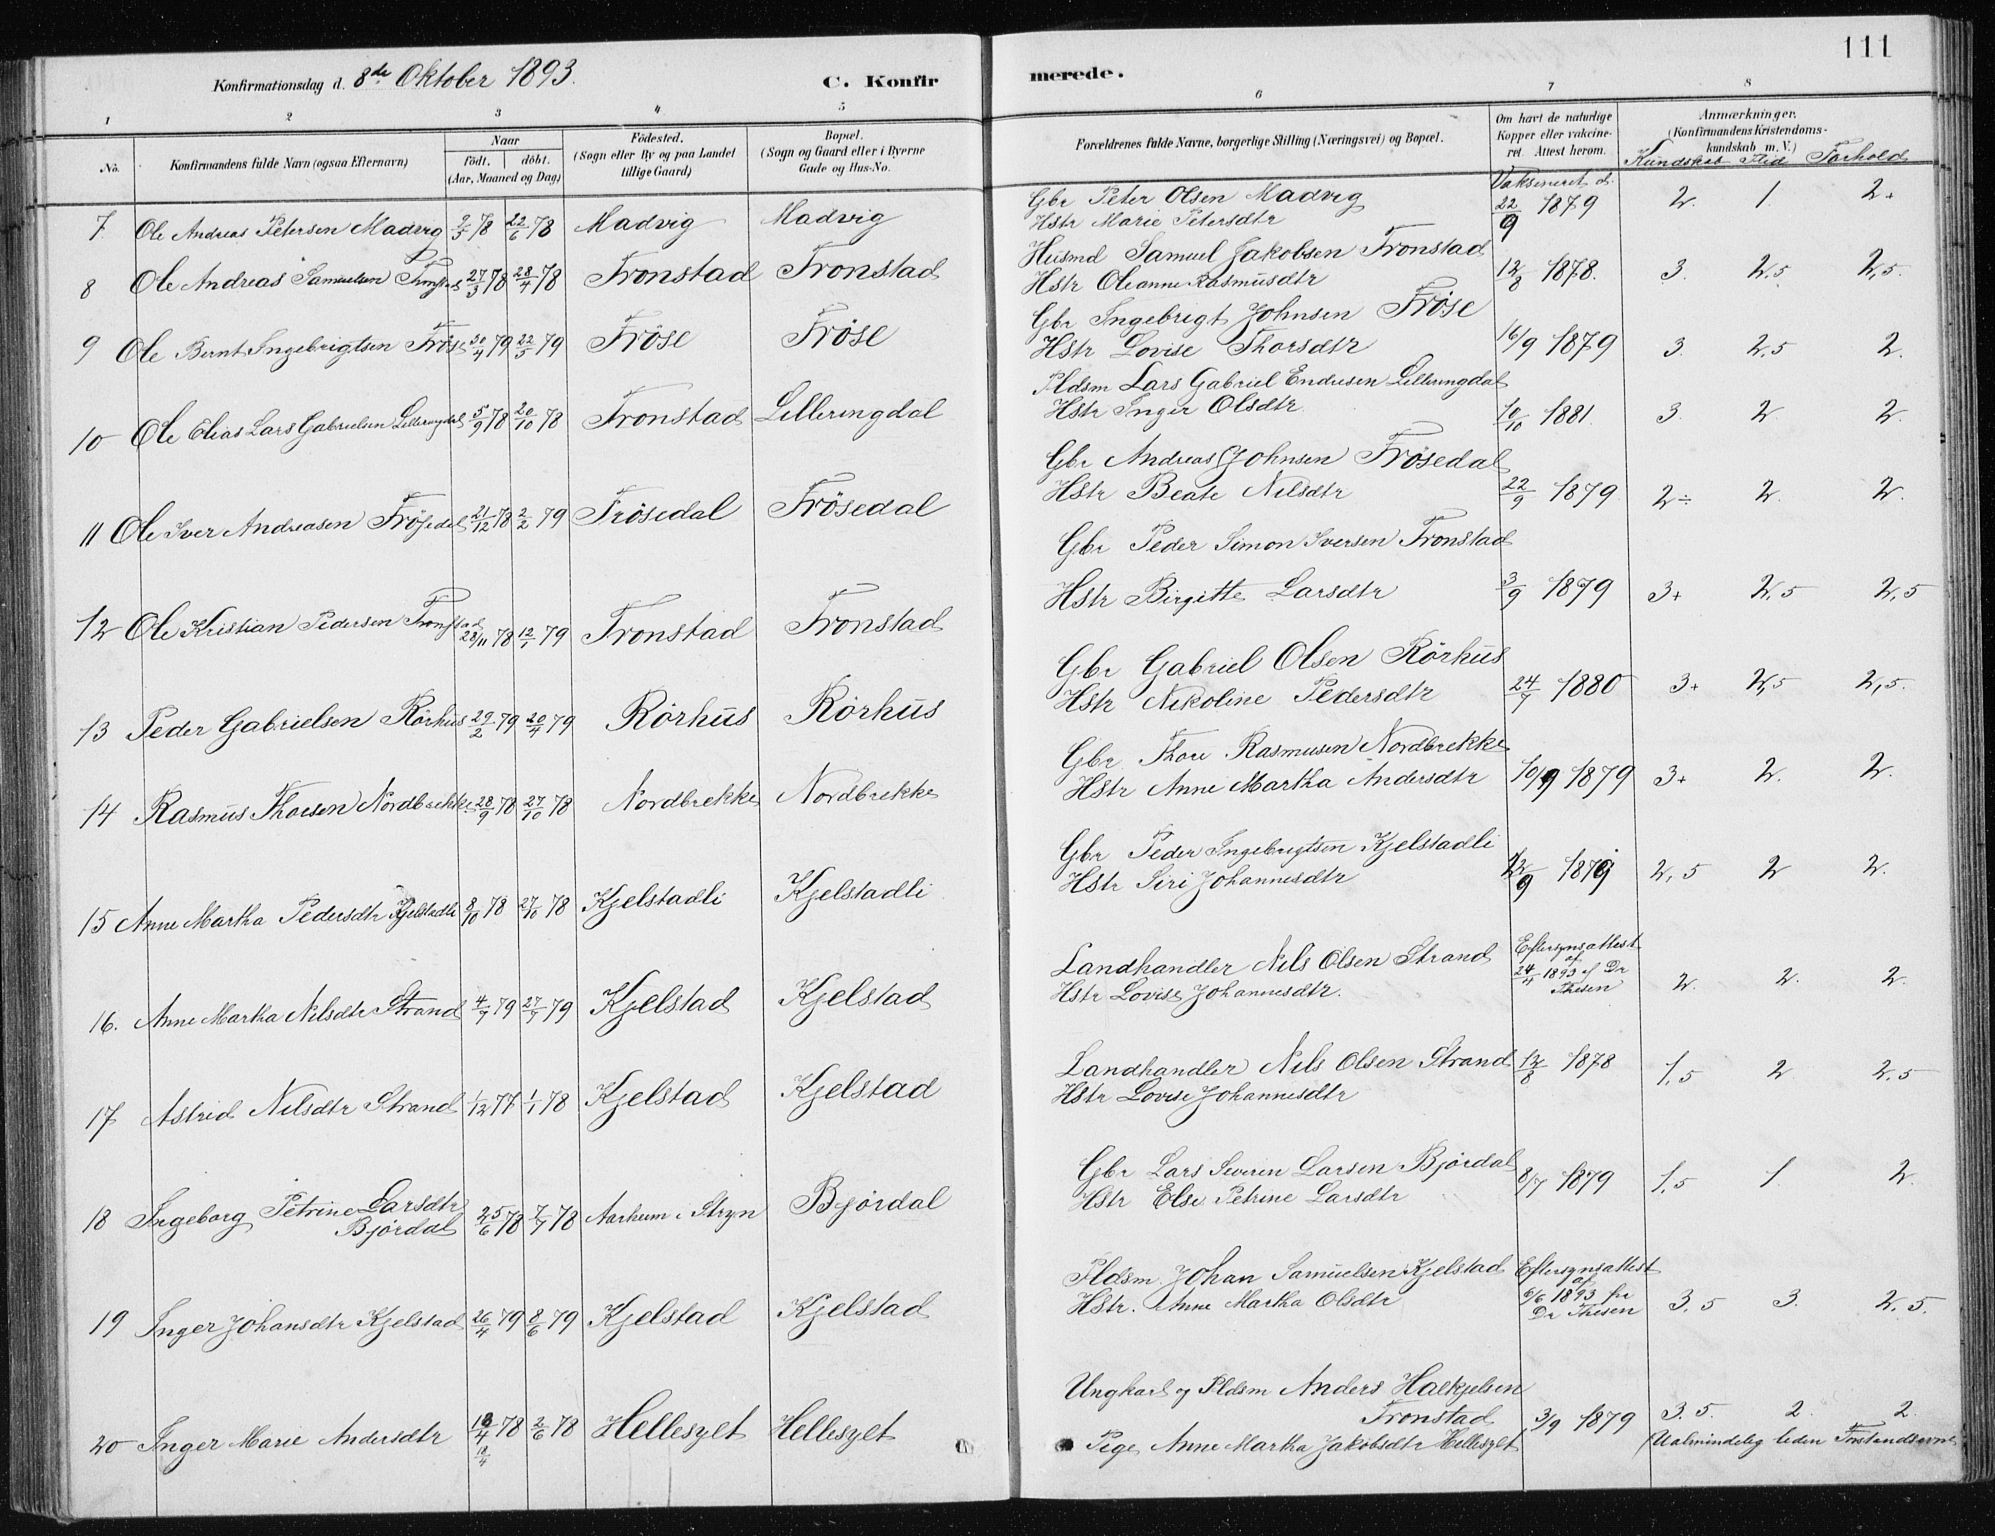 111
Konfirmationsdag d. 8de Oktober 1893. C. Konfirmerede.
1 2 3 4 5 6 7 8
No. Konfirmandens fulde Navn (ogsaa Efternavn) Naar født. døbt. (Aar, Maaned og Dag) Fødested. (Sogn eller By og paa Landet tillige Gaard) Bopæl. (Sogn og Gaard eller i Byerne Gade og Hus-No. Forældrenes fulde Navne, borgerlige Stilling (Næringsvei) og Bopæl. Om havt de naturlige Kopper eller vakcineret. Attest herom. Anmærkninger. (Konfirmandens Kristendomskundskab m. V.) Kundskab Flid Forhold
7 Ole Andreas Petersen Madvig 2/5 78 22/6 78 Madvig Madvig Gbr Peter Olsen Madvig Vaksineret d. 22/9 1879 2. 1. 2+
Hstr Marie Petersdtr
8 Ole Andreas Samuelsen Tronstad 27/3 78 28/4 78 Tronstad Tronstad Husmd Samuel Jakobsen Tronstad 12/8 1878. 3. 2,5 2,5.
Hstr Oleanne Rasmusdtr
9 Ole Bernt Ingebrigtsen Frøse 30/4 79 22/5 79 Frøse Frøse Gbr Ingebrigt Johnsen Frøse 16/9 1879 3. 2,5 2.
Hstr Lovise Thorsdtr
10 Ole Elias Lars Gabrielsen Lilleringdal 5/9 78 20/10 78 Tronstad Lilleringdal Pldsm Lars Gabriel Endresen Lilleringdal 10/10 1881. 3. 2 2.
Hstr Inger Olsdtr
11 Ole Iver Andreasen Frøsedal 21/12 78 2/2 79 Frøsedal Frøsedal Gbr Andreas Johnsen Frøsedal 22/9 1879 2÷ 2. 2.
Hstr Beate Nilsdtr
12 Ole Kristian Pedersen Tronstad 28/11 78 12/1 79 Tronstad Tronstad Gbr Peder Simon Iversen Tronstad 3/9 1879 3+ 2,5 2,5
Hstr Birgitte Larsdtr
13 Peder Gabrielsen Rørhus 29/2 79 20/4 79 Rørhus Rørhus Gbr Gabriel Olsen Rørhus 24/7 1880 3+ 2,5 2,5.
Hstr Nikoline Pedersdtr
14 Rasmus Thoresen Nordbrekke 28/9 78 27/10 78 Nordbrekke Nordbrekke Gbr Thore Rasmusen Nordbrekke 10/9 1879 3+ 2. 2.
Hstr Anne Martha Andersdtr
15 Anne Martha Pedersdtr Kjelstadli 8/10 78 27/10 78 Kjelstadli Kjelstadli Gbr Peder Ingebrigtsen Kjelstadli 12/9 1879 2,5 2 2.
Hstr Siri Johannesdtr
16. Anne Martha Nilsdtr Strand 4/7 79 27/7 79 Kjelstad Kjelstad Landhandler Nils Olsen Strand Eftersynsattest af 24/4 1893 af Dr Thesen 2. 2. 2.
Hstr Lovise Johannesdtr.
17 Astrid Nilsdtr Strand 1/12 77 1/1 78 Kjelstad Kjelstad Landhandler Nils Olsen Strand 12/8 1878 1,5 2 2.5
Hstr Lovise Johannesdtr
18 Ingeborg Petrine Larsdtr Bjørdal 25/6 78 7/7 78 Aarheim i Stryn Bjørdal Gbr Lars Severin Larsen Bjørdal 8/7 1879 1,5 1. 2.
Hstr Else Petrine Larsdtr
19 Inger Johansdtr Kjelstad 26/4 79 8/6 79 Kjelstad Kjelstad Pldsm Johan Samuelsen Kjelstad Eftersynsattest af 6/6 1893 fra Dr Thesen 3,5 3. 2.5.
Hstr. Anne Martha Olsdtr
20 Inger Marie Andersdtr 18/4 78 2/6 78 Hellesylt Hellesylt Ungkarl og Pldsm Anders Halkjelsen Tronstad 3/9 1879 3.5. 2. 2.
Pige Anne Martha Jakobsdtr Hellesylt (Ualmindelig liden Forstandsevne